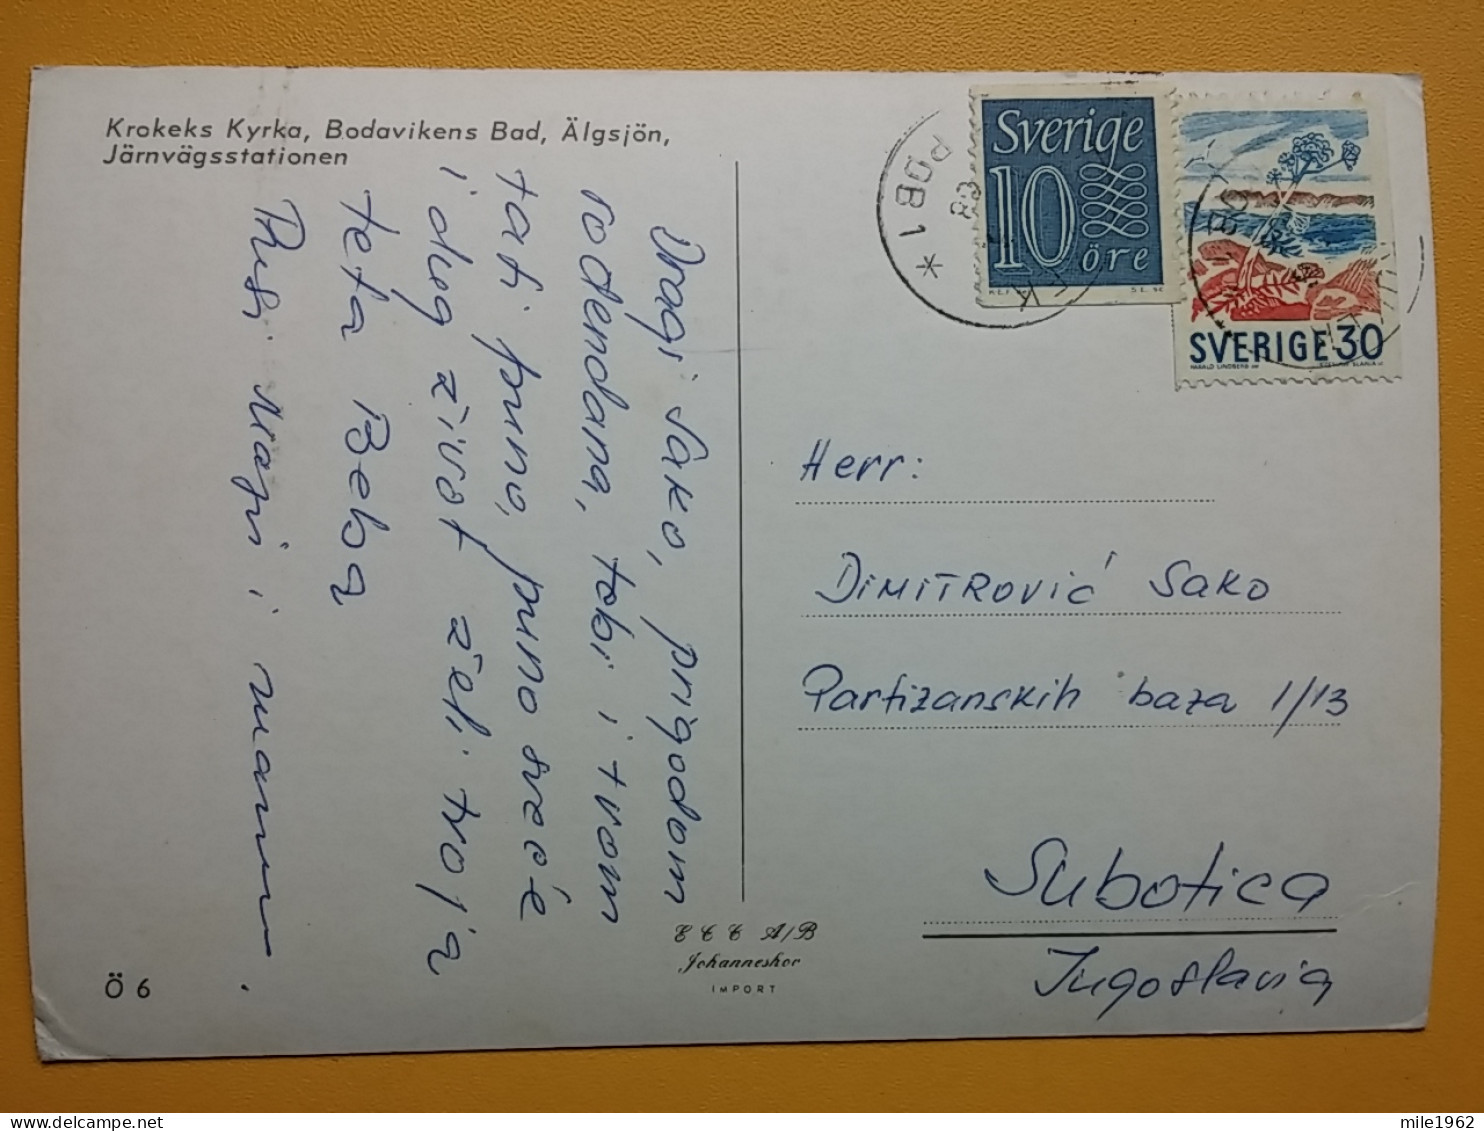 Krokeks Kyrka, Bodavikens Bad, Älgsjön,
Järnvägsstationen
Dragi Sako, prigodom
rođendana, tebi i tvom
tati puno, puno sreće
i dug život želi tvoja
teta Beba
i
Sverige
10
öre
SVERIGE 30
HARALD LINDBERG
POB 1 *
Herr:
DIMITROVIĆ SAKO
Partizanskih baza 1/13
Subotica
Jugoslavia
E C C A/B
Johanneshov
IMPORT
Ö 6
mile1962